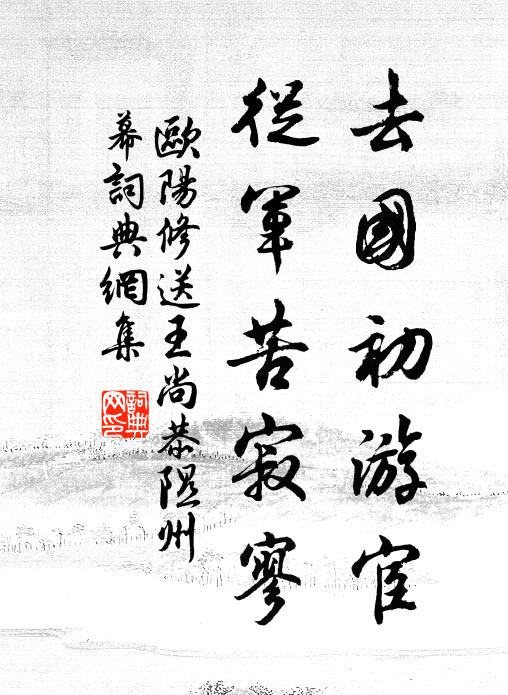 去國初游宦
從軍苦寂寥
歐陽修送王尚恭隰州
幕詞典網集
詞典
网印